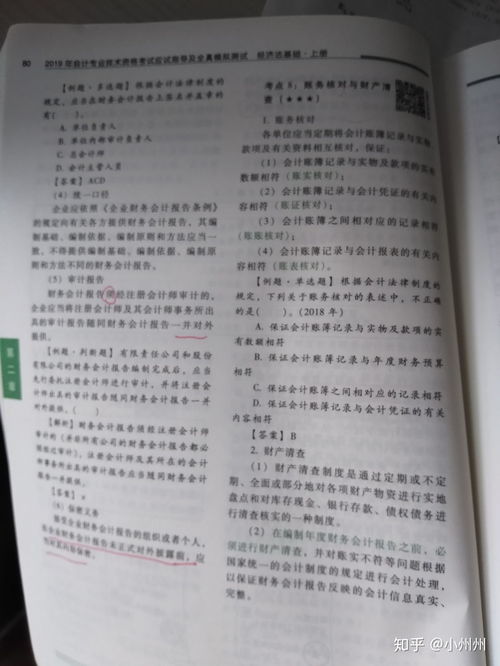 80 2019年会计专业技术资格考试应试指导及全真模拟测试 经济法基础·上册
【例题·多选题】根据会计法律制度的
规定,下列人员中,应当在财务会计报告上签名并盖章的
有( )。
A. 单位负责人
B. 单位内部审计负责人
C. 总会计师
D. 会计主管人员
【答案】ACD
(4)统一口径
企业应依照《企业财务会计报告条例》
的规定向有关各方提供财务会计报告,其编
制基础、编制依据、编制原则和方法应当一
致,不得提供编制基础、编制依据、编制原
则和方法不同的财务会计报告。
(5)审计报告
财务会计报告须经注册会计师审计的,
企业应当将注册会计师及其会计师事务所出
具的审计报告随同财务会计报告一并对外
提供。
【例题·判断题】有限责任公司和股份
有限公司的财务会计报告编制完成后,应当
先行委托注册会计师进行审计,并将注册会
计师出具的审计报告随同财务会计报告一并
对外提供。( )
【解析】财务会计报告须经注册会计师
审计的(并非所有公司的财务会计报告都必
须经过审计),注册会计师及其所在的会计
师事务所出具的审计报告应当随同财务会计
报告一并提供。
【答案】×
(6)保密义务
接受企业财务会计报告的组织或者个人,
在企业财务会计报告未正式对外披露前,应
当对其内容保密。
第二章
考点8:账务核对与财产清
查(★★★)
1. 账务核对
各单位应当定期将会计账簿记录与实物、
款项及有关资料相互核对,保证:
(1)会计账簿记录与实物及款项的实有
数额相符(账实核对);
(2)会计账簿记录与会计凭证的有关内
容相符(账证核对);
(3)会计账簿之间相对应的记录相符
(账账核对);
(4)会计账簿记录与会计报表的有关内
容相符(账表核对)。
【例题·单选题】根据会计法律制度的
规定,下列关于账务核对的表述中,不正确
的是( )。(2018年)
A. 保证会计账簿记录与实物及款项的实
有数额相符
B. 保证会计账簿记录与年度财务预算
相符
C. 保证会计账簿之间相对应的记录相符
D. 保证会计账簿记录与会计凭证的有关
内容相符
【答案】B
2. 财产清查
(1)财产清查制度是通过定期或不定
期、全面或部分地对各项财产物资进行实地
盘点和对库存现金、银行存款、债权债务进
行清查核实的一种制度。
(2)在编制年度财务会计报告之前,必
须进行财产清查,并对账实不符等问题根据
国家统一的会计制度的规定进行会计处理,
以保证财务会计报告反映的会计信息真实、
完整。
知乎 @小州州